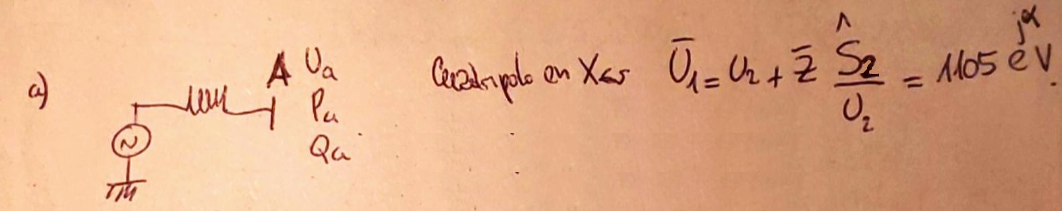 a)
A Ua
Pa
Qa
Cuadripolo en Xcc Ū₁ = U₂ + Z̄ Ŝ₂/U₂ = 1105 e^jα V.